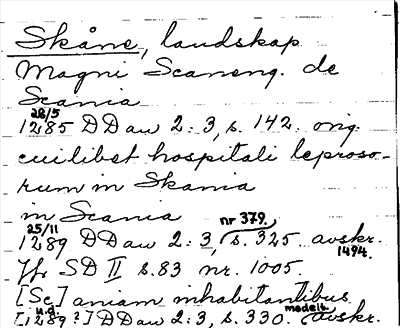 Skåne, landskap
Magni Scaneng. de
Scania
28/5
1285 DDan 2:3, s. 142. orig.
cuilibet hospitali leproso-
rum in Skania
in Scania
25/11 nr 379.
1289 DDan 2:3, s. 325 avskr.
1494.
Jfr SD II s. 83 nr. 1005.
[Sc]aniam inhabitantibus
u.d. medelt.
[1289?] DDan 2:3, s. 330. avskr.